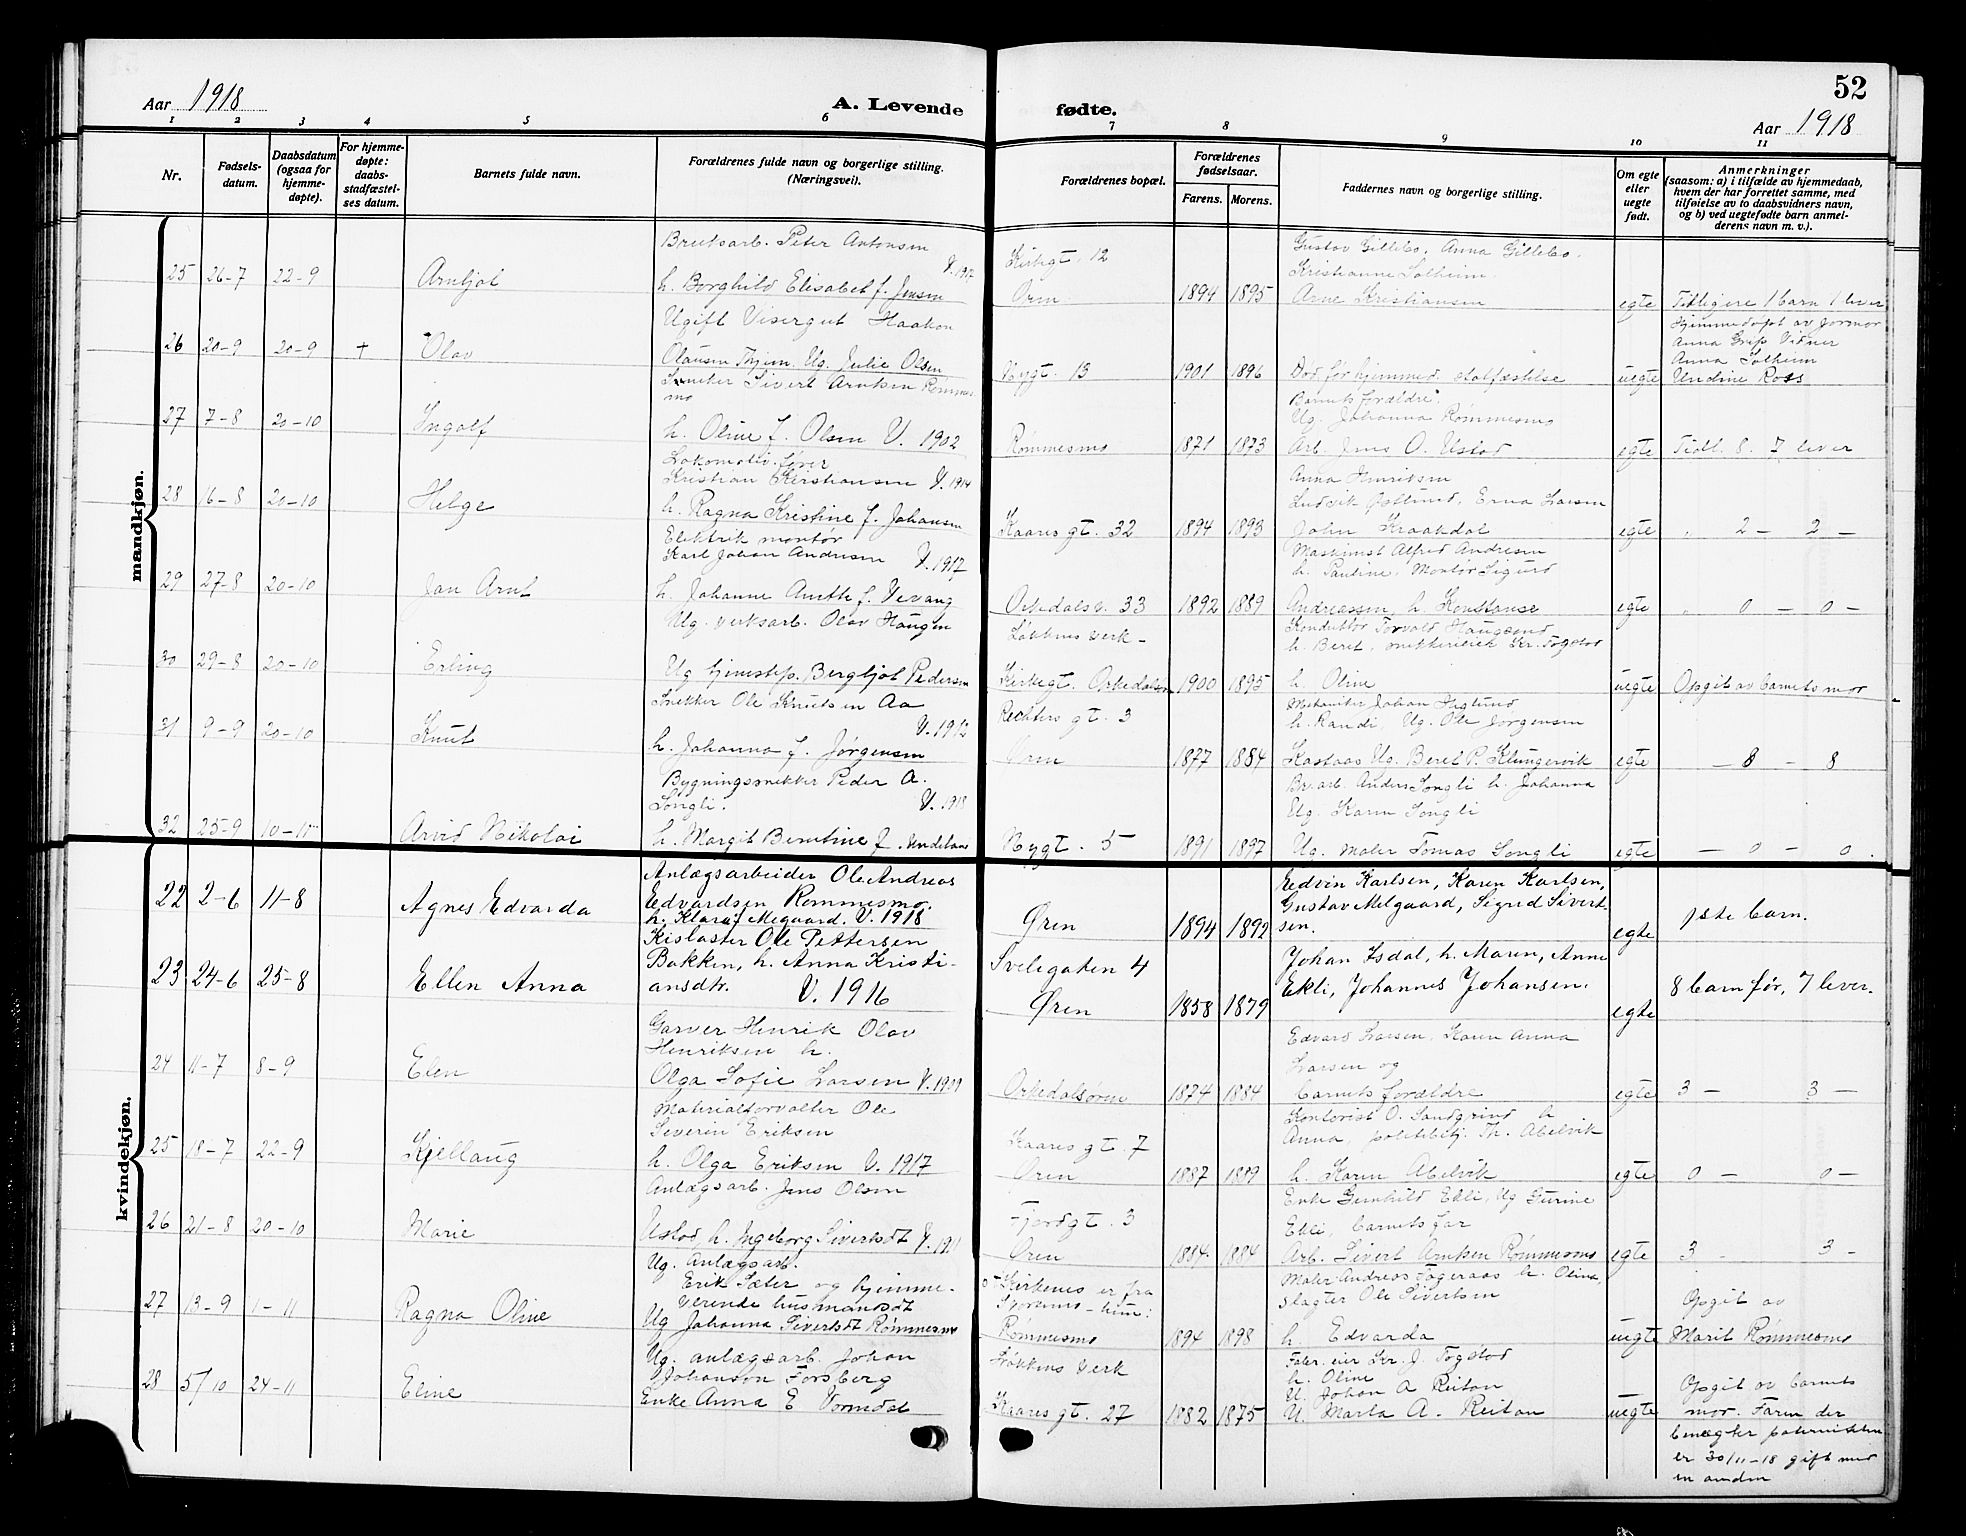 52
Aar 1918
A. Levende fødte.
Aar 1918
1 2 3 4 5 6 7 8 9 10 11
Nr.
Fødsels-
datum.
Daabsdatum
(ogsaa for
hjemme-
døpte).
For hjemme-
døpte:
daabs-
stadfæstel-
ses datum.
Barnets fulde navn.
Forældrenes fulde navn og borgerlige stilling.
(Næringsvei).
Forældrenes bopæl.
Forældrenes
fødselsaar.
Farens. Morens.
Faddernes navn og borgerlige stilling.
Om egte
eller
uegte
født.
Anmerkninger
(saasom: a) i tilfælde av hjemmedaab,
hvem der har forrettet samme, med
tilføielse av to daabsvidners navn,
og b) ved uegtefødte barn anmel-
derens navn m. v.).
mandkjøn.
25 26-7 22-9 Arnljot
Brutsarb. Peter Antonsen V. 1917
h. Borghild Elisabet f. Jensen
Kirkegt. 12
Øren 1894 1895
Gustav Gillebo, Anna Gillebo.
Kristianne Solheim
Arne Kristiansen
egte Tidligere 1 barn 1 lever
26 20-9 20-9 + Olav
Ugift Visergut Haakon
Olausen Thjem. Ug. Julie Olsen
Nygt. 13 1901 1896
Død før hjemmed. statfæstelse
uegte
Hjemmedøpt av jormor
Anna Grip Vidner
Anna Solheim
Undine Ross
27 7-8 20-10 Ingolf
Snekker Sivert Arntsen Rømmes-
mo
h. Oline f. Olsen V. 1902
Rømmesmo 1871 1873
Barnets forældre.
Ug. Johanna Rømmesmo
Arb. Jens O. Ustad
egte Tidl. 8. 7 lever
28 16-8 20-10 Helge
Lokomotivfører
Kristian Kristiansen V. 1914
h. Ragna Kristine f. Johansen
Kaares gt. 32 1894 1893
Anna Henriksen
Ludvik Østlund, Erna Larsen
John Kraakdal
egte " 2 - 2 -
29 27-8 20-10 Jan Arnt
Elektrik montør
Karl Johan Andresen V. 1917
h. Johanne Anette f. Vevang
Orkedalsv. 33 1892 1889
Maskinist Alfred Andresen
h. Pauline. Montør Sigurd
Andreassen, h. Konstanse
egte " 0 - 0 -
30 29-8 20-10 Erling
Ug. verksarb. Olav Haugen
Ug tjenestep. Bergljot Pedersen
Løkkens verk -
Kirkegt. Orkedalsøren 1900 1895
Konduktør Torvald Haugsend
h. Beret, snekkerieier Kr. Togstad
h. Oline
uegte Opgit av barnets mor
31 9-9 20-10 Knut
Snekker Ole Knutsen Aa
V. 1912
h. Johanna f. Jørgensen
Rechters gt. 3
Øren 1877 1884
Mekaniker Johan Heglund
h. Randi, Ug. Ole Jørgensen
Kastaas Ug. Beret P. Klungervik
egte - 8 - 8
32 25-9 10-11 Arvid Nikolai
Bygningssnekker Peder A.
Songli. V. 1918
h. Margit Berntine f.
Nygt. 5 1891 1897
Br. arb. Anders Songli h. Johanna
Ug. Karen Songli
Ug. maler Tomas Songli
egte - 0 - 0.
kvindekjøn.
22 2-6 11-8 Agnes Edvarda
Anlægsarbeider Ole Andreas
Edvardsen Rømmesmo.
h. Klara f. Megaard. V. 1918
Øren 1894 1892
Edvin Karlsen, Karen Karlsen,
Gustav Melgaard, Sigrid Sivert-
sen.
egte 1ste barn.
23 24-6 25-8 Ellen Anna
Kislaster Ole Pettersen
Bakken, h. Anna Kristi-
ansdtr. V. 1916
Svelegaten 4
Øren 1858 1879
Johan Isdal, h. Maren, Anne
Ekli, Johannes Johansen.
egte 8 barn før, 7 lever.
24 11-7 8-9 Elen
Garver Henrik Olav
Henriksen h.
Olga Sofie Larsen V. 1909
Orkedalsøren 1874 1884
Edvard Larsen, Karen Anna
Larsen og
barnets forældre
egte 3 - 3 -
25 18-7 22-9 Kjellaug
Materialforvalter Ole
Severin Eriksen
h. Olga Eriksen V. 1917
Kaares gt. 7
Øren 1887 1889
Kontorist O. Sandgrind h
Anna, politibetj. Th. Abelvik
h. Karen Abelvik
egte 0 - 0 -
26 21-8 20-10 Marie
Anlægsarb. Jens Olsen
Ustad h. Ingeborg Sivertsdt V. 1911
Fjordgt. 3
Øren 1884 1884
Enke Gunhild Ekli, Ug Gurine
Ekli, barnets far
Arb. Sivert Arntsen Rømmesmo
egte 3 - 3 -
27 13-9 1-11 Ragna Oline
Ug. Anlægsarb.
Erik Sæter og hjemme-
værende husmandsdt
Ug Johanna Sivertsdt Rømmesmo
Kirkenes er fra
Rømmesmo 1894 1898
Maler Andreas Togeraas h. Olina,
Slagter Ole Sivertsen
h. Edvarda
uegte
Opgit av
Marit Rømmesmo
28 5/10 24-11 Eline
Ug. anlægsarb. Johan
Johanson Forsberg
Enke Anna E Vormdal
Løkkens verk
Kaares gt. 27 1882 1875
Fabr. eier Kr. J. Togstad
h. Oline
U. Johan A Reitan
U. Marta A. Reitan
uegte
Opgit av barnets
mor. Faren der
benegter paterniteten
er 30/11-18 gift med
en anden